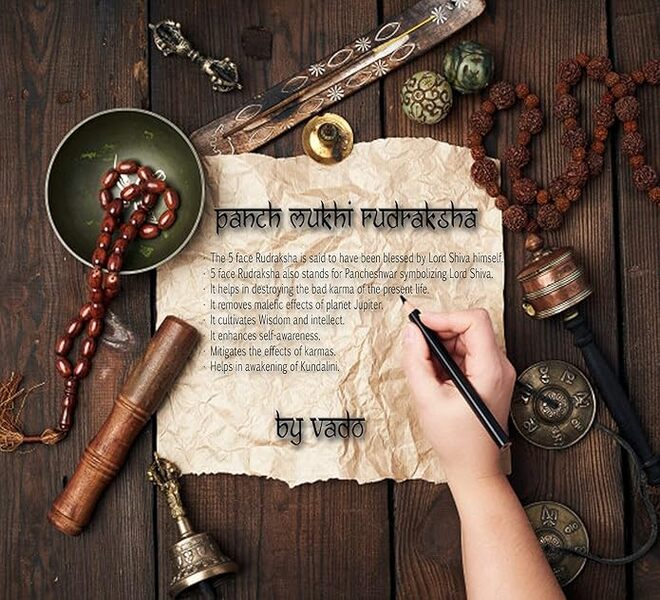 panch mukhi rudraksha
· The 5 face Rudraksha is said to have been blessed by Lord Shiva himself.
· 5 face Rudraksha also stands for Pancheshwar symbolizing Lord Shiva.
· It helps in destroying the bad karma of the present life.
· It removes malefic effects of planet Jupiter.
· It cultivates Wisdom and intellect.
· It enhances self-awareness.
· Mitigates the effects of karmas.
· Helps in awakening of Kundalini.
by vado